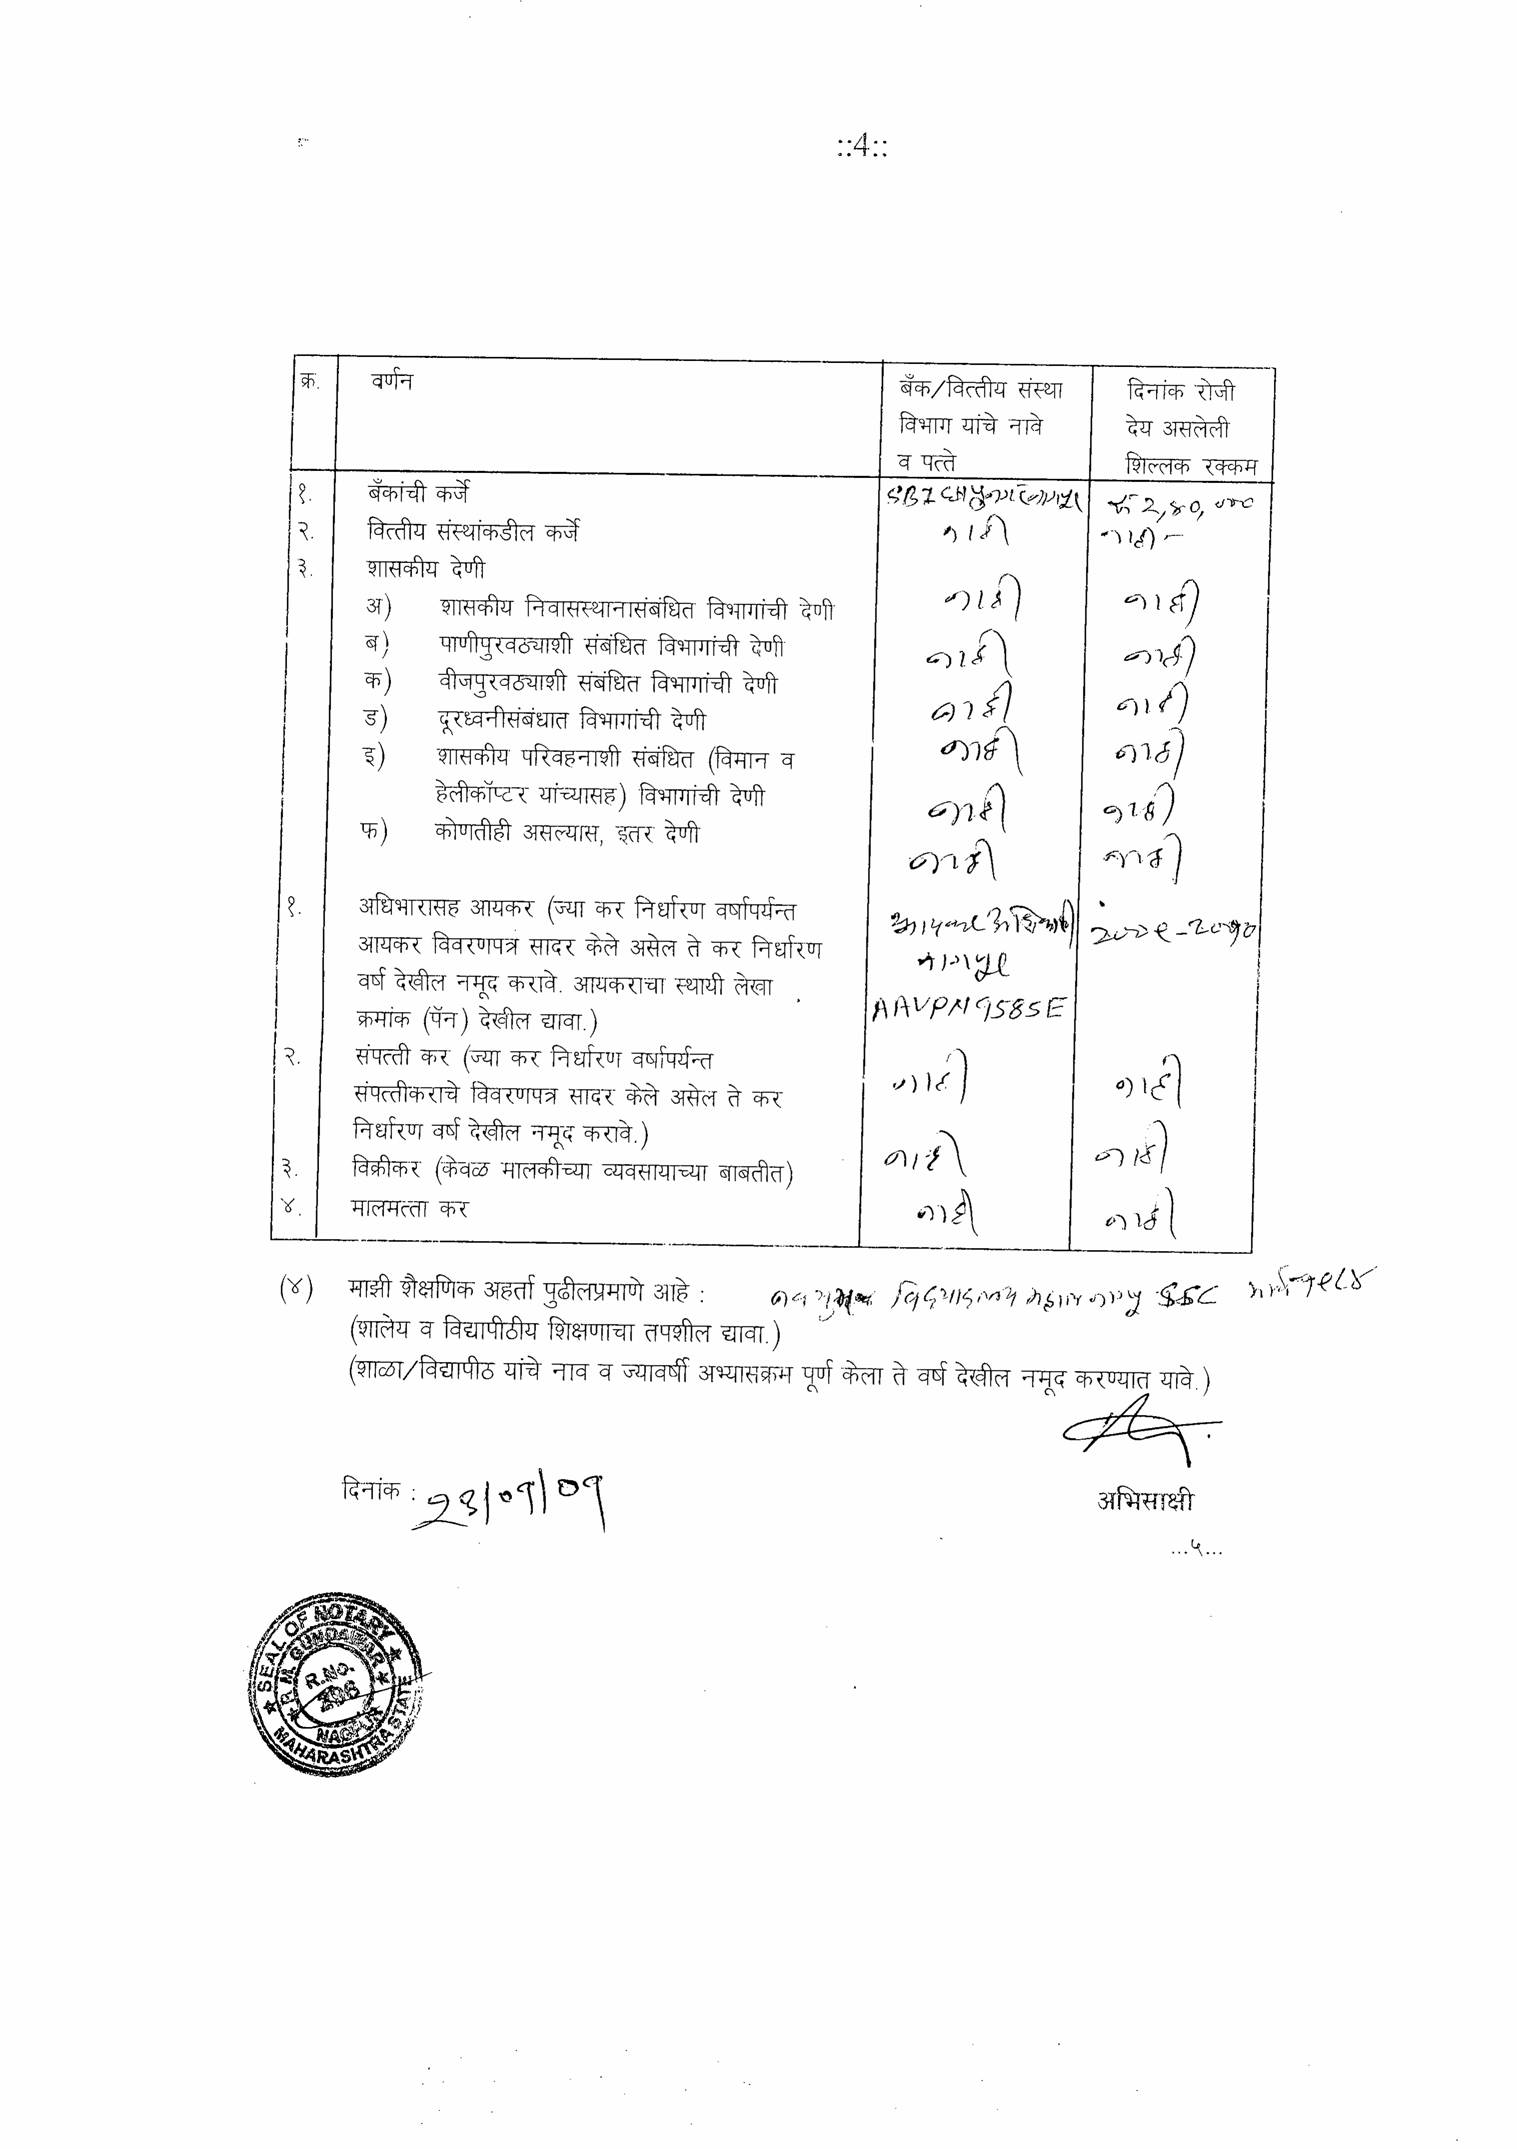 ::4::
क्र. वर्णन बँक/वित्तीय संस्था दिनांक रोजी
विभाग यांचे नावे देय असलेली
व पत्ते शिल्लक रक्कम
१. बँकांची कर्जे SBI रु २,४०,०००
२. वित्तीय संस्थांकडील कर्जे नाही नाही -
३. शासकीय देणी
अ) शासकीय निवासस्थानासंबंधित विभागांची देणी नाही नाही
ब) पाणीपुरवठ्याशी संबंधित विभागांची देणी नाही नाही
क) वीजपुरवठ्याशी संबंधित विभागांची देणी नाही नाही
ड) दूरध्वनीसंबंधात विभागांची देणी नाही नाही
इ) शासकीय परिवहनाशी संबंधित (विमान व
हेलीकॉप्टर यांच्यासह) विभागांची देणी नाही नाही
फ) कोणतीही असल्यास, इतर देणी नाही नाही
१. अधिभारासह आयकर (ज्या कर निर्धारण वर्षापर्यन्त आयकर अधिकारी २००९-२०१०
आयकर विवरणपत्र सादर केले असेल ते कर निर्धारण नागपूर
वर्ष देखील नमूद करावे. आयकराचा स्थायी लेखा
क्रमांक (पॅन) देखील द्यावा.) AAVPN9585E
२. संपत्ती कर (ज्या कर निर्धारण वर्षापर्यन्त
संपत्तीकराचे विवरणपत्र सादर केले असेल ते कर नाही नाही
निर्धारण वर्ष देखील नमूद करावे.)
३. विक्रीकर (केवळ मालकीच्या व्यवसायाच्या बाबतीत) नाही नाही
४. मालमत्ता कर नाही नाही
(४) माझी शैक्षणिक अहर्ता पुढीलप्रमाणे आहे : नवयुवक विद्यालय महाल नागपूर SSC मार्च-१९८४
(शालेय व विद्यापीठीय शिक्षणाचा तपशील द्यावा.)
(शाळा/विद्यापीठ यांचे नाव व ज्यावर्षी अभ्यासक्रम पूर्ण केला ते वर्ष देखील नमूद करण्यात यावे.)
दिनांक : २३/०९/०९
अभिसाक्षी
...५...
SEAL OF NOTARY
R. M. GUNDAWAR
R.No.
NAGPUR
MAHARASHTRA STATE